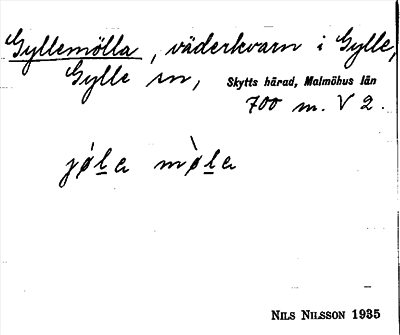 Gyllemölla, väderkvarn i Gylle,
Gylle sn, Skytts härad, Malmöhus län
700 m. V 2.
NILS NILSSON 1935